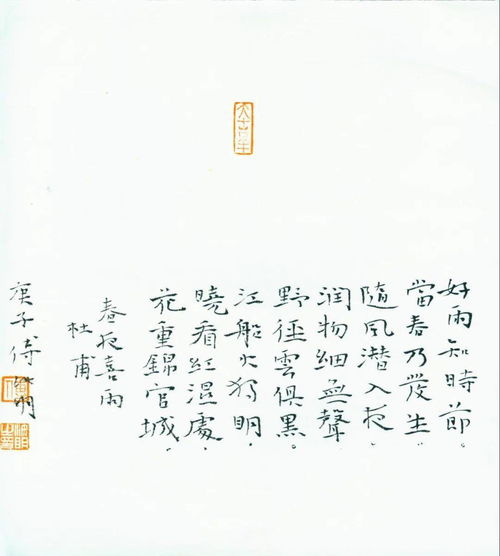 好雨知時節.
當春乃發生.
隨風潛入夜.
润物细無聲.
野徑雲俱黑.
江船火獨明.
曉看紅濕處.
花重錦官城.
春夜喜雨
杜甫
庚子